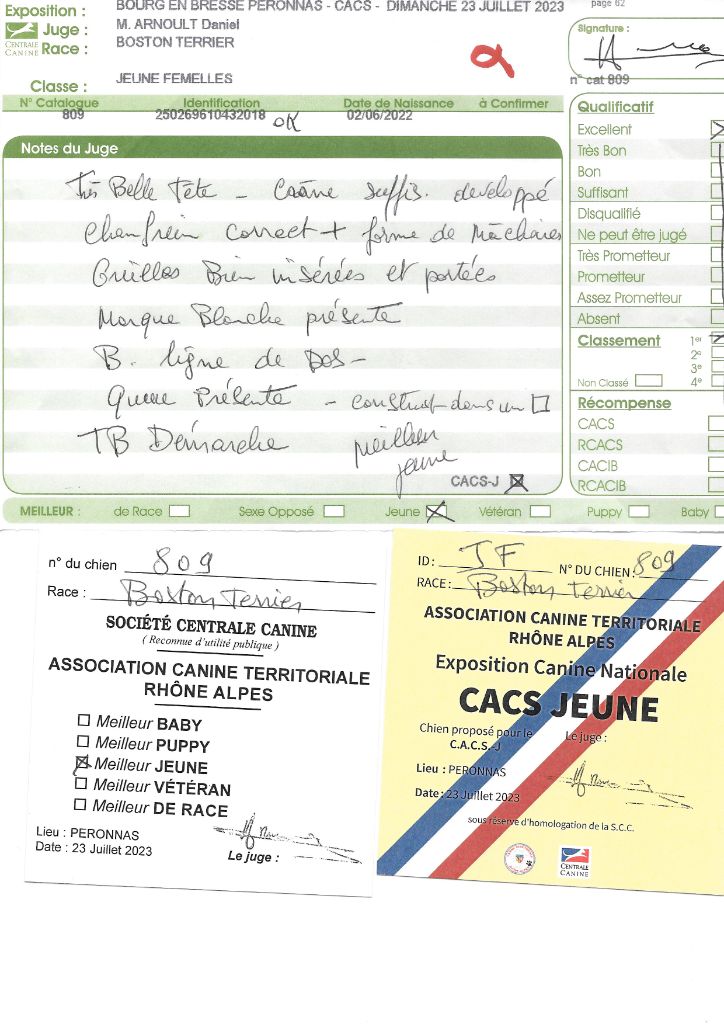 Exposition : BOURG EN BRESSE PERONNAS - CACS - DIMANCHE 23 JUILLET 2023
page 62
Juge : M. ARNOULT Daniel
CENTRALE CANINE
Race : BOSTON TERRIER
Signature :
Classe : JEUNE FEMELLES
n° cat 809
N° Catalogue Identification Date de Naissance à Confirmer
809 250269610432018 OK 02/06/2022
Notes du Juge
Très Belle Tête - Crâne suffis. developpé
Chanfrein correct + forme de Mâchoires
Oreilles Bien insérées et portées
Marque Blanche présente
B. ligne de Dos -
Queue Présente - construct dans un □
TB Démarche meilleur
jeune
CACS-J ☒
Qualificatif
Excellent
Très Bon
Bon
Suffisant
Disqualifié
Ne peut être jugé
Très Prometteur
Prometteur
Assez Prometteur
Absent
Classement 1er
2e
3e
Non Classé 4e
Récompense
CACS
RCACS
CACIB
RCACIB
MEILLEUR : de Race Sexe Opposé Jeune ☒ Vétéran Puppy Baby
n° du chien 809
Race : Boston Terrier
SOCIÉTÉ CENTRALE CANINE
( Reconnue d'utilité publique )
ASSOCIATION CANINE TERRITORIALE
RHÔNE ALPES
☐ Meilleur BABY
☐ Meilleur PUPPY
☒ Meilleur JEUNE
☐ Meilleur VÉTÉRAN
☐ Meilleur DE RACE
Lieu : PERONNAS
Date : 23 Juillet 2023
Le juge :
ID : JF N° DU CHIEN : 809
RACE : Boston Terrier
ASSOCIATION CANINE TERRITORIALE
RHÔNE ALPES
Exposition Canine Nationale
CACS JEUNE
Chien proposé pour le
C.A.C.S.-J
Le juge :
Lieu : PERONNAS
Date : 23 Juillet 2023
sous réserve d'homologation de la S.C.C.
CENTRALE
CANINE